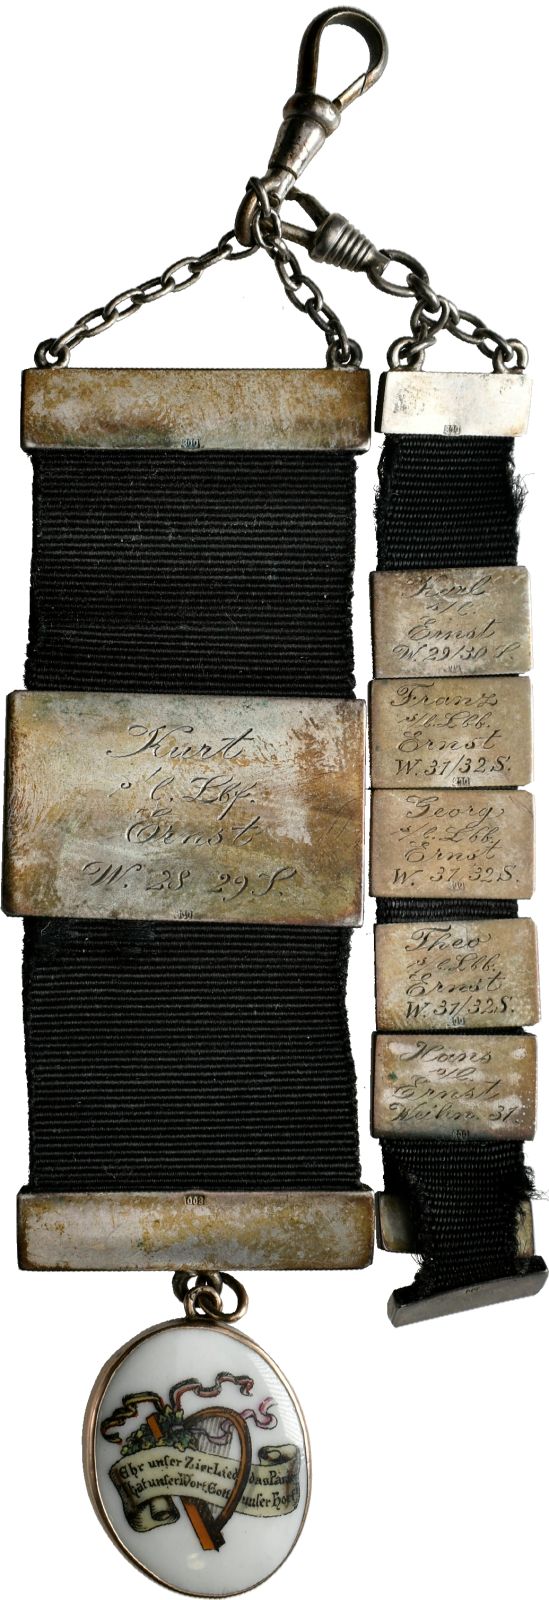 800
Kurt
s/l. Lbf.
Ernst
W. 28 29 S.
800
800
Ehr unser Zier Lied das
Tat unser Wort Gott unser Hort
800
Karl
s/l.
Ernst
W. 29/30 S.
Franz
s/l. Lbb.
Ernst
W. 31/32 S.
Georg
s/l. Lbb.
Ernst
W. 31 32 S.
Theo
s/l. Lbb.
Ernst
W. 31/32 S.
Hans
s/l.
Ernst
Weihn. 31.